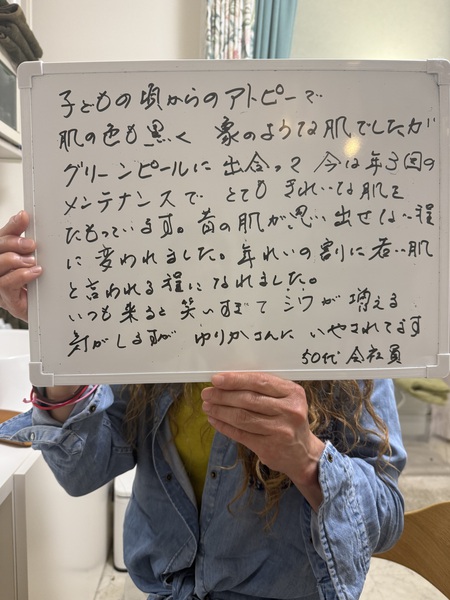 子どもの頃からのアトピーで
肌の色も黒く 象のような肌でしたが
グリーンピールに出会って 今は年3回の
メンテナンスで とても きれいな肌を
たもっています。昔の肌が思い出せない程
に変われました。年れいの割に若い肌
と言われる程になれました。
いつも来ると笑いすぎて シワが増える
気がしますが ゆりかさんに いやされてます
50代 会社員